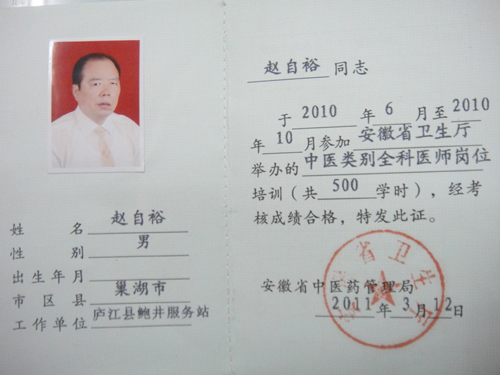 姓名 赵自裕
性别 男
出生年月
市区县 巢湖市
工作单位 庐江县鲍井服务站
赵自裕 同志
于 2010 年 6 月至 2010
年 10 月参加 安徽省卫生厅
举办的 中医类别全科医师岗位
培训(共 500 学时),经考
核成绩合格,特发此证。
安徽省卫生厅
安徽省中医药管理局
2011 年 3 月 12 日